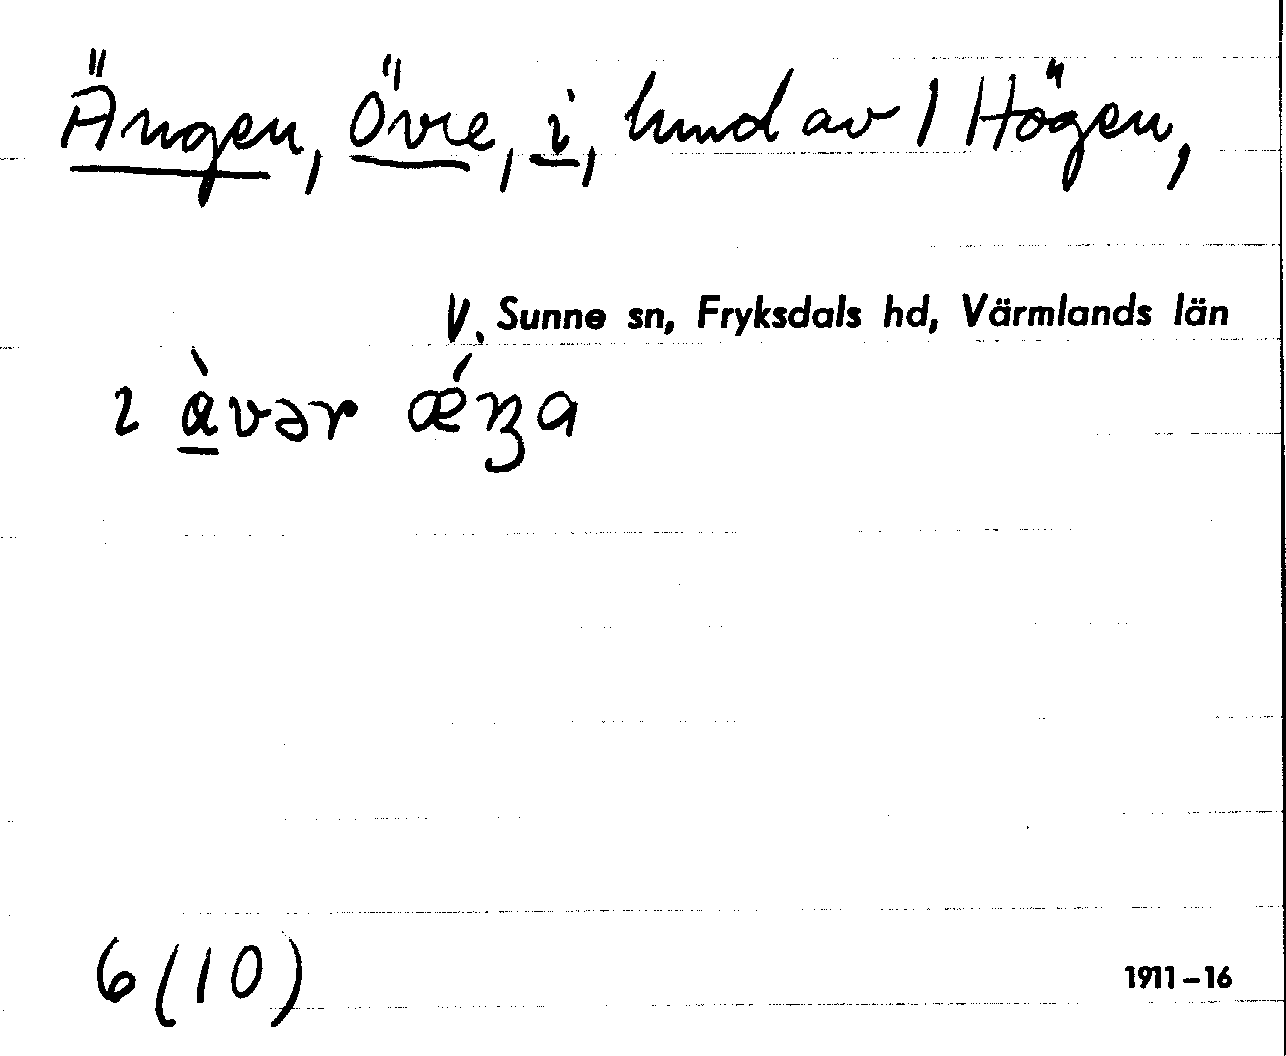 Ängen, Övre, i, hmd av 1 Högen,
V. Sunne sn, Fryksdals hd, Värmlands län
ı àvər ǽŋa
6(10)
1911-16